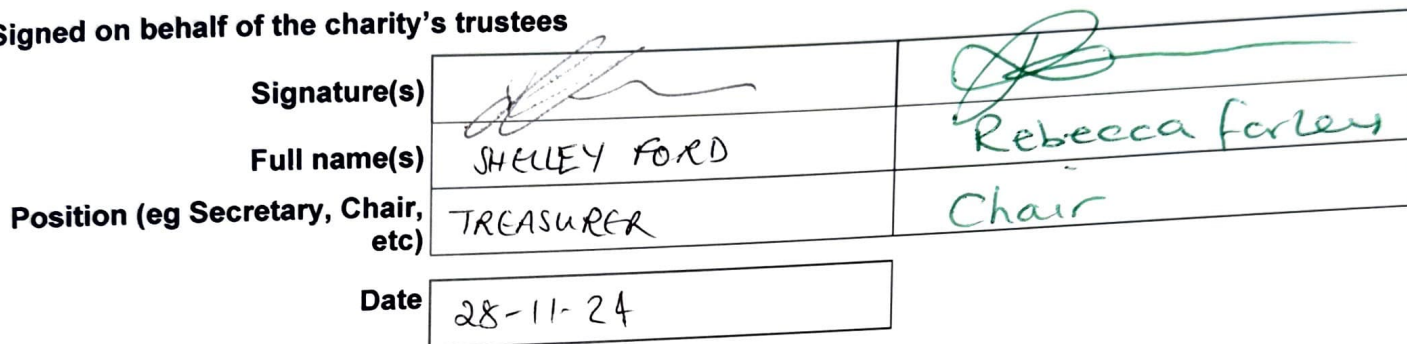 Signed on behalf of the charity's trustees
Signature(s)
Full name(s) SHELLEY FORD Rebecca Farley
Position (eg Secretary, Chair, etc) TREASURER Chair
Date 28-11-24